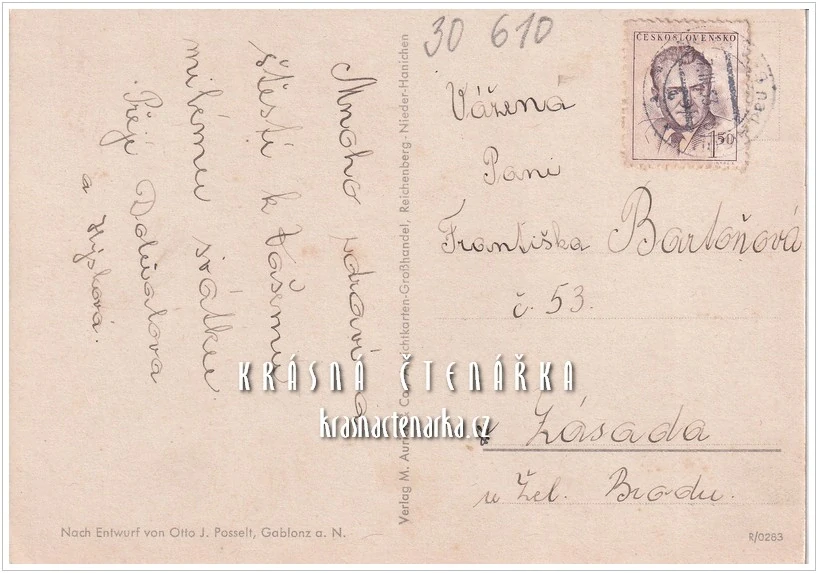 30 610
ČESKOSLOVENSKO
1.50
Mnoho zdraví a
štěstí k Vašemu
milému svátku
Přejí
a
Vážená
Paní
Františka Bartoňová
č. 53.
Zásada
u Žel. Brodu.
KRÁSNÁ ČTENÁŘKA
krasnactenarka.cz
Verlag M. Aum Ansichtkarten-Großhandel, Reichenberg - Nieder-Hanichen
Nach Entwurf von Otto J. Posselt, Gablonz a. N.
R/0283